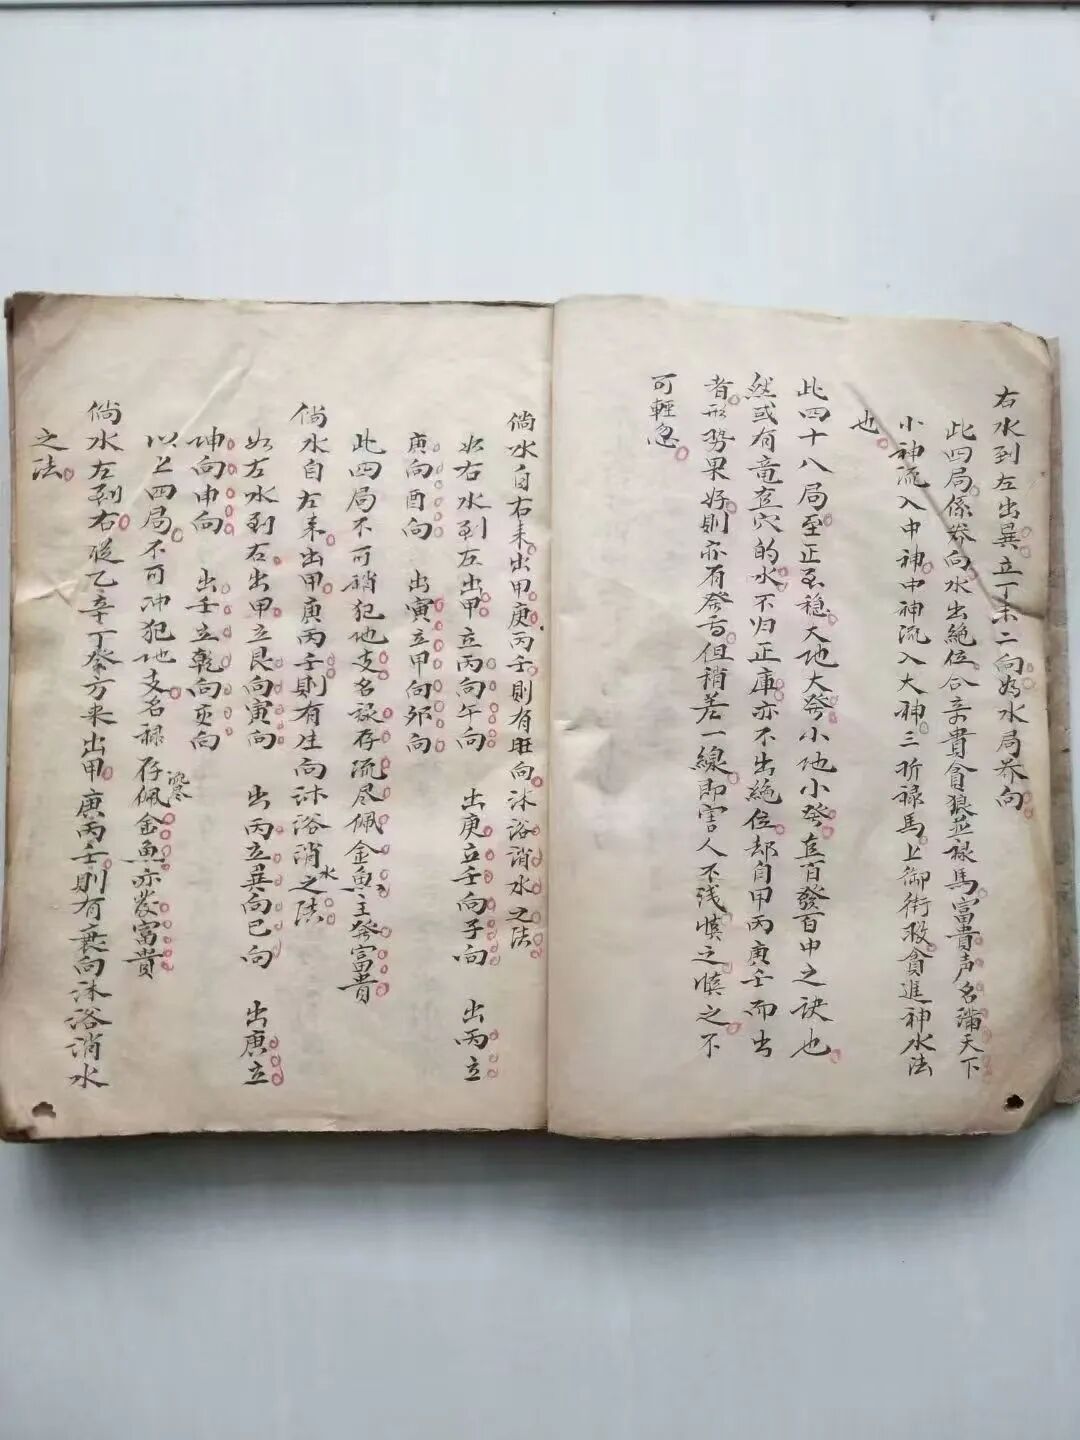 右水到左出巽立丁未二向為水局养向
此四局係养向水出絶位合辛貴貪狼並禄馬富貴声名滿天下
小神流入中神中神流入大神三折禄馬上御街取貪進神水法
也
此四十八局至正至穏大地大發小地小發真百發百中之訣也
然或有竜真穴的水不归正庫亦不出絶位却自甲丙庚壬而出
者形势果好則亦有發而但稍差一線即害人不浅慎之慎之不
可輕忽
倘水自右来出甲庚丙壬則有旺向沐浴消水之法
如右水到左出甲立丙向午向 出庚立壬向子向 出丙立
庚向酉向 出寅立甲向卯向
此四局不可稍犯地支名禄存流尽佩金魚主發富貴
倘水自左来出甲庚丙壬則有生向沐浴消水之法
如左水到右出甲立艮向寅向 出丙立巽向巳向 出庚立
坤向申向 出壬立乾向亥向
以上四局不可冲犯地支名禄存流尽佩金魚亦發富貴
倘水左到右從乙辛丁癸方来出甲庚丙壬則有衰向沐浴消水
之法